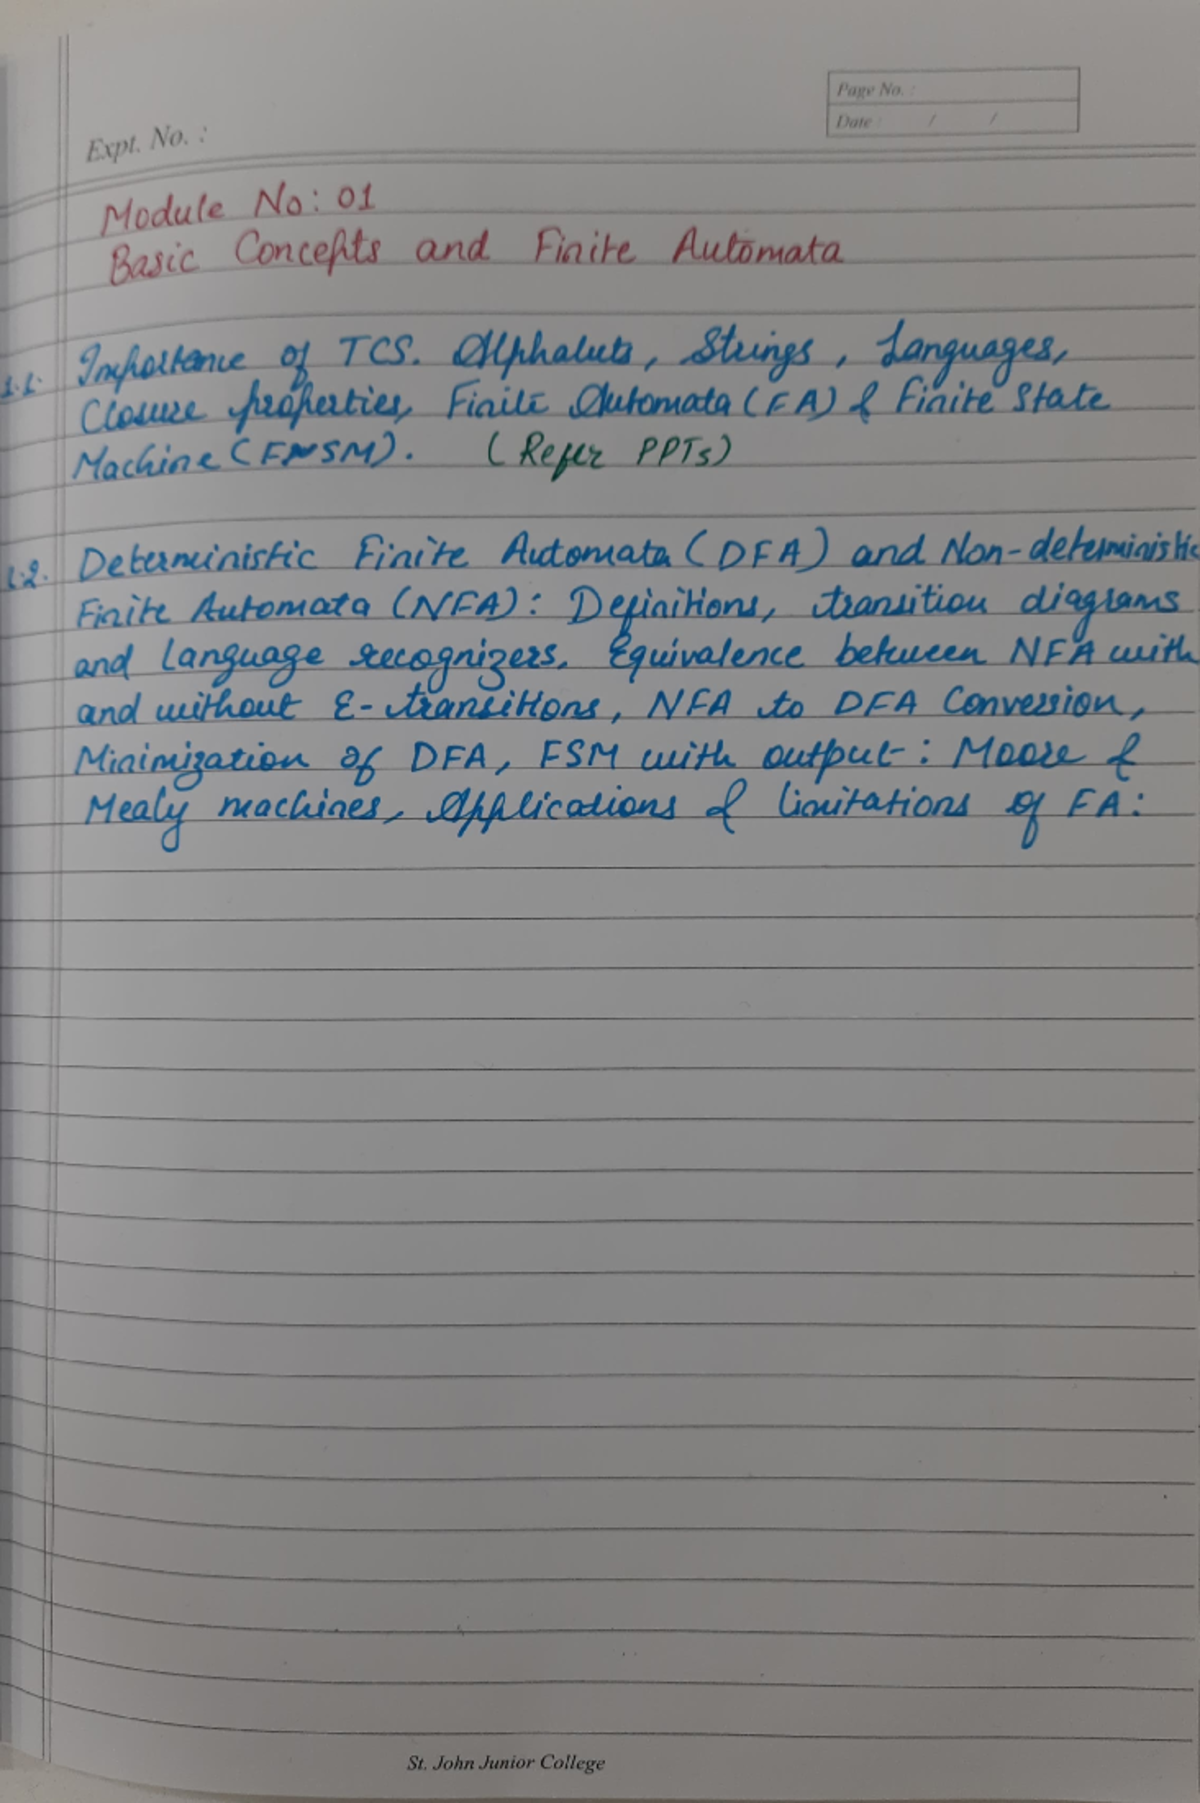 Page No. :
Date : / /
Expt. No. :
Module No: 01
Basic Concepts and Finite Automata
1.1. Importance of TCS. Alphabets, Strings, Languages,
Closure properties, Finite Automata (FA) & Finite State
Machine (FSM). (Refer PPTs)
1.2. Deterministic Finite Automata (DFA) and Non-deterministic
Finite Automata (NFA): Definitions, transition diagrams
and Language recognizers. Equivalence between NFA with
and without ε-transitions, NFA to DFA Conversion,
Minimization of DFA, FSM with output: Moore &
Mealy machines, Applications & limitations of FA:
St. John Junior College